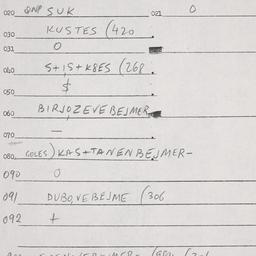 020 QNP SUK 021 0
030 KUSTES (420
031 0
040 S+1S+K8ES (268
050 $
060 BIRJOZEVEBEJMER
070 —
080 GOLES) KAS+TANENBEJMER-
090 0
091 DUBOVEBEJME (306
092 +